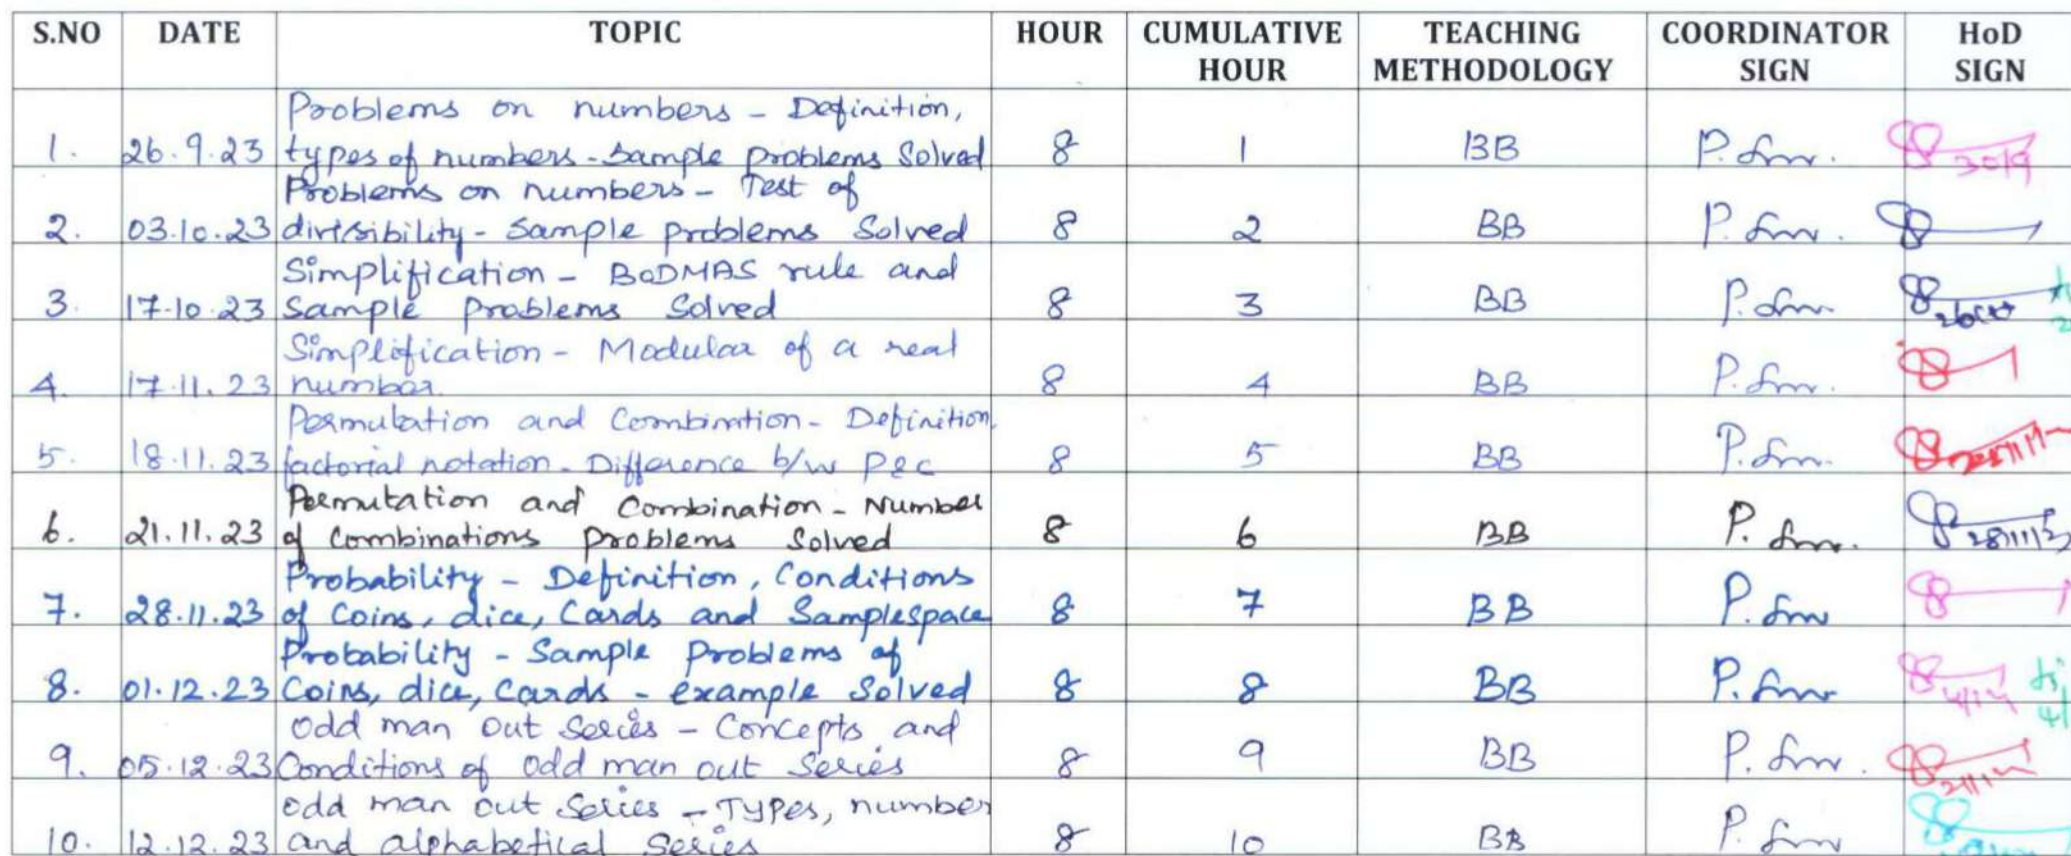 S.NO DATE TOPIC HOUR CUMULATIVE HOUR TEACHING METHODOLOGY COORDINATOR SIGN HoD SIGN
Problems on numbers - Definition,
1. 26.9.23 types of numbers - Sample problems Solved 8 1 BB
Problems on numbers - Test of
2. 03.10.23 divisibility - Sample problems Solved 8 2 BB
Simplification - BODMAS rule and
3. 17.10.23 Sample Problems Solved 8 3 BB
Simplification - Modular of a real
4. 17.11.23 number. 8 4 BB
Permutation and Combintion - Definition,
5. 18.11.23 factorial notation - Difference b/w P&C 8 5 BB
Permutation and Combination - Number
6. 21.11.23 of Combinations Problems Solved 8 6 BB
Probability - Definition, Conditions
7. 28.11.23 of Coins, dice, Cards and Samplespace 8 7 BB
Probability - Sample Problems of
8. 01.12.23 Coins, dice, Cards - example Solved 8 8 BB
Odd man out Series - Concepts and
9. 05.12.23 Conditions of odd man out Series 8 9 BB
Odd man out Series - Types, number
10. 12.12.23 and alphabetical Series 8 10 BB